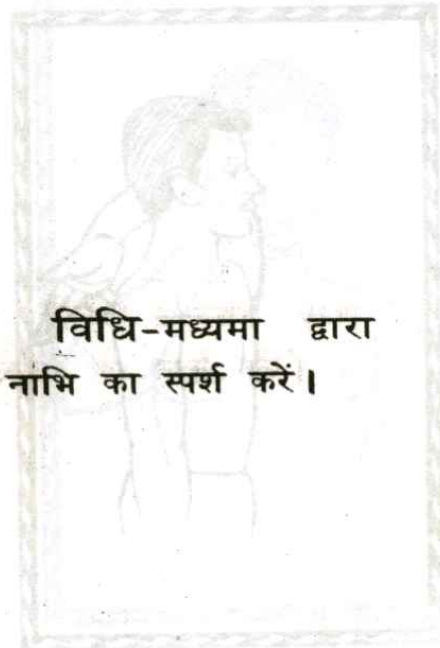 विधि-मध्यमा द्वारा
नाभि का स्पर्श करें।